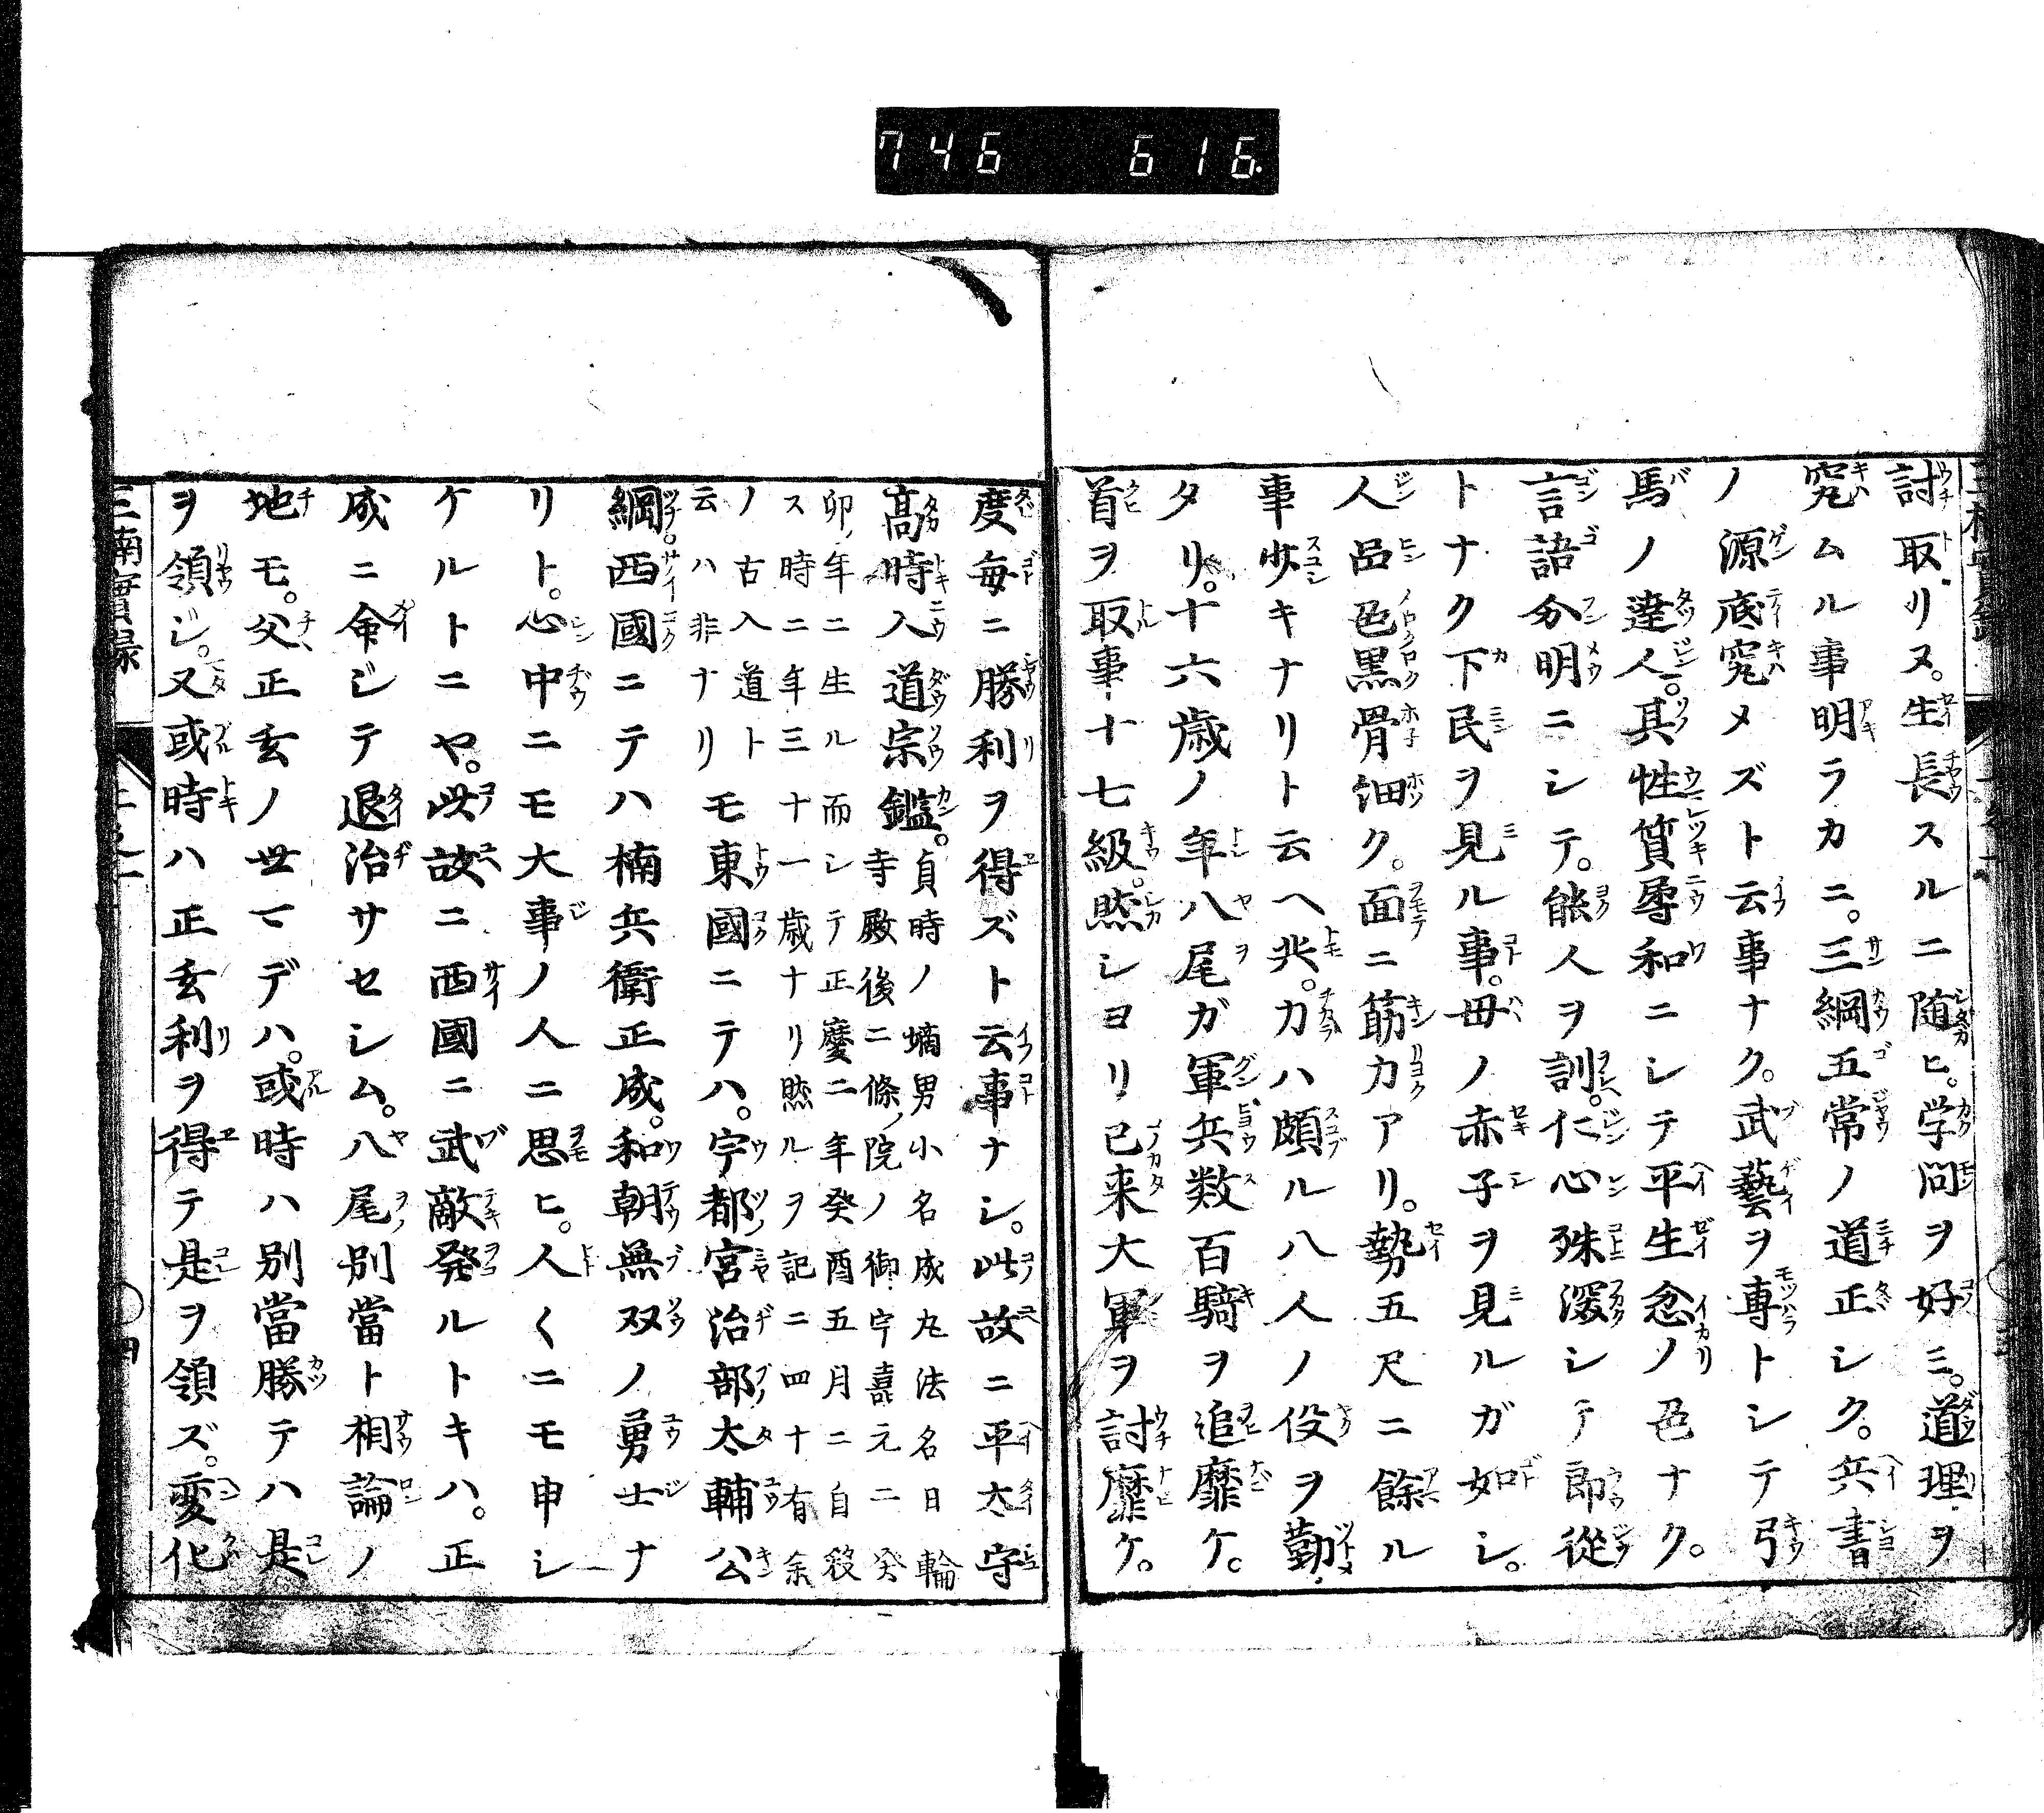 746 616.
討取リヌ。生長スルニ随ヒ。学問ヲ好ミ。道理ヲ
究ムル事明ラカニ。三綱五常ノ道正シク。兵書
ノ源底究メズト云事ナク。武藝ヲ専トシテ弓
馬ノ達人。其性質辱和ニシテ平生忿ノ色ナク。
言語分明ニシテ。能人ヲ訓。仁心殊深シテ即從
トナク下民ヲ見ル事。母ノ赤子ヲ見ルガ如シ。
人品色黒骨細ク。面ニ筋力アリ。勢五尺ニ餘ル
事少キナリト云へ共。力ハ頗ル八人ノ役ヲ勤
タリ。十六歳ノ年八尾ガ軍兵数百騎ヲ追靡ケ。
首ヲ取事十七級。然シヨリ已来大軍ヲ討靡ケ。
度毎ニ勝利ヲ得ズト云事ナシ。此故ニ平太守
髙時入道宗鑑。貞時ノ嫡男小名成九法名日輪
寺殿後二條ノ院ノ御宇嘉元二癸
卯ノ年ニ生ル而シテ正慶二年癸酉五月ニ自殺
ス時ニ年三十一歳ナリ然ルヲ記ニ四十有余
ノ古入道ト
云ハ非ナリモ東國ニテハ。宇都宮治部太輔公
綱。西國ニテハ楠兵衛正成。和朝無双ノ勇士ナ
リト。心中ニモ大事ノ人ニ思ヒ。人〱ニモ申シ
ケルトニヤ。此故ニ西國ニ武敵発ルトキハ。正
成ニ命ジテ退治サセシム。八尾別當ト相論ノ
地モ。父正玄ノ世マデハ。或時ハ別當勝テハ是
ヲ領ジ。又或時ハ正玄利ヲ得テ是ヲ領ズ。変化
三楠實録
四